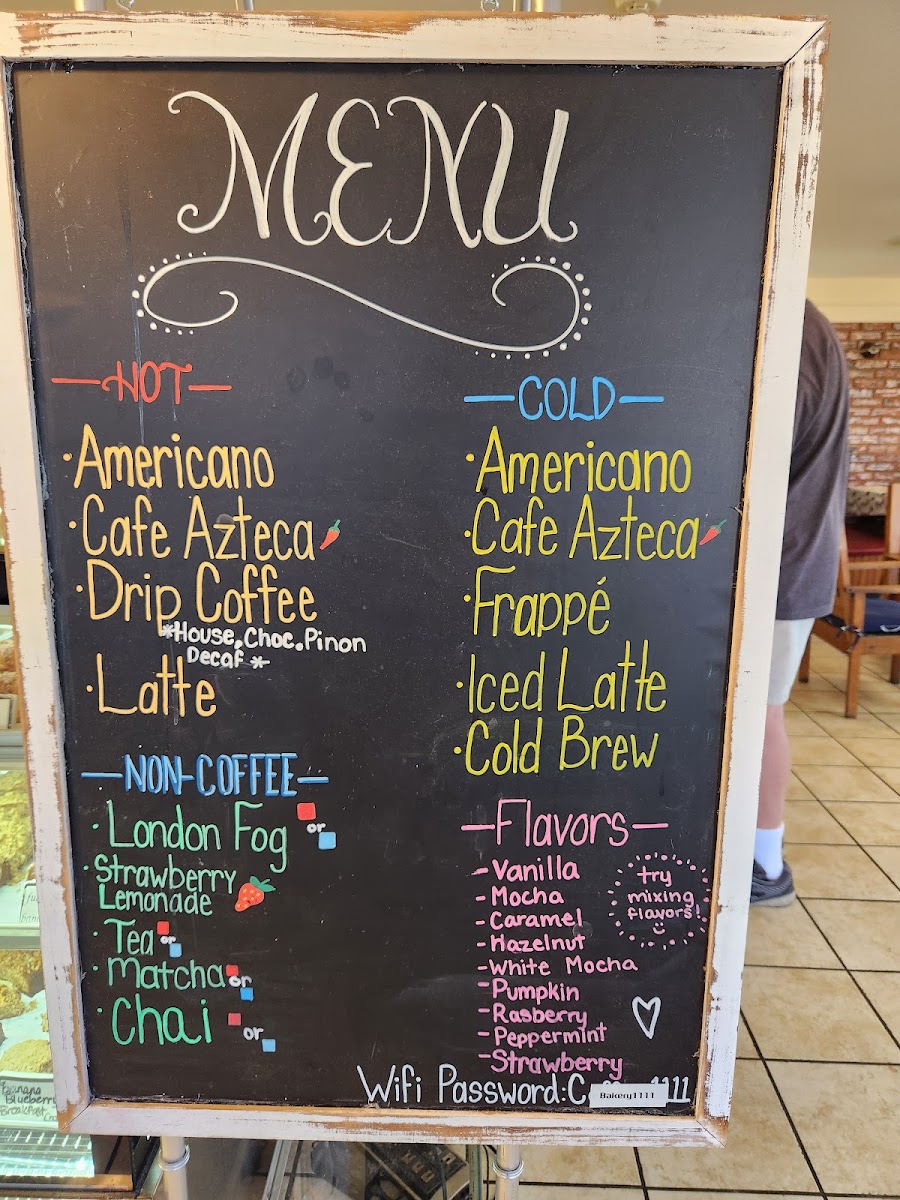 MENU
HOT
·Americano
·Cafe Azteca
·Drip Coffee
*House, Choc. Pinon
Decaf *
·Latte
NON-COFFEE
·London Fog or
·Strawberry
Lemonade
·Tea or
·Matcha or
·Chai or
COLD
·Americano
·Cafe Azteca
·Frappé
·Iced Latte
·Cold Brew
Flavors
-Vanilla
-Mocha
-Caramel
-Hazelnut
-White Mocha
-Pumpkin
-Rasberry
-Peppermint
-Strawberry
try
mixing
flavors!
Wifi Password:
Bakery1111
Banana
Blueberry
Breakfast